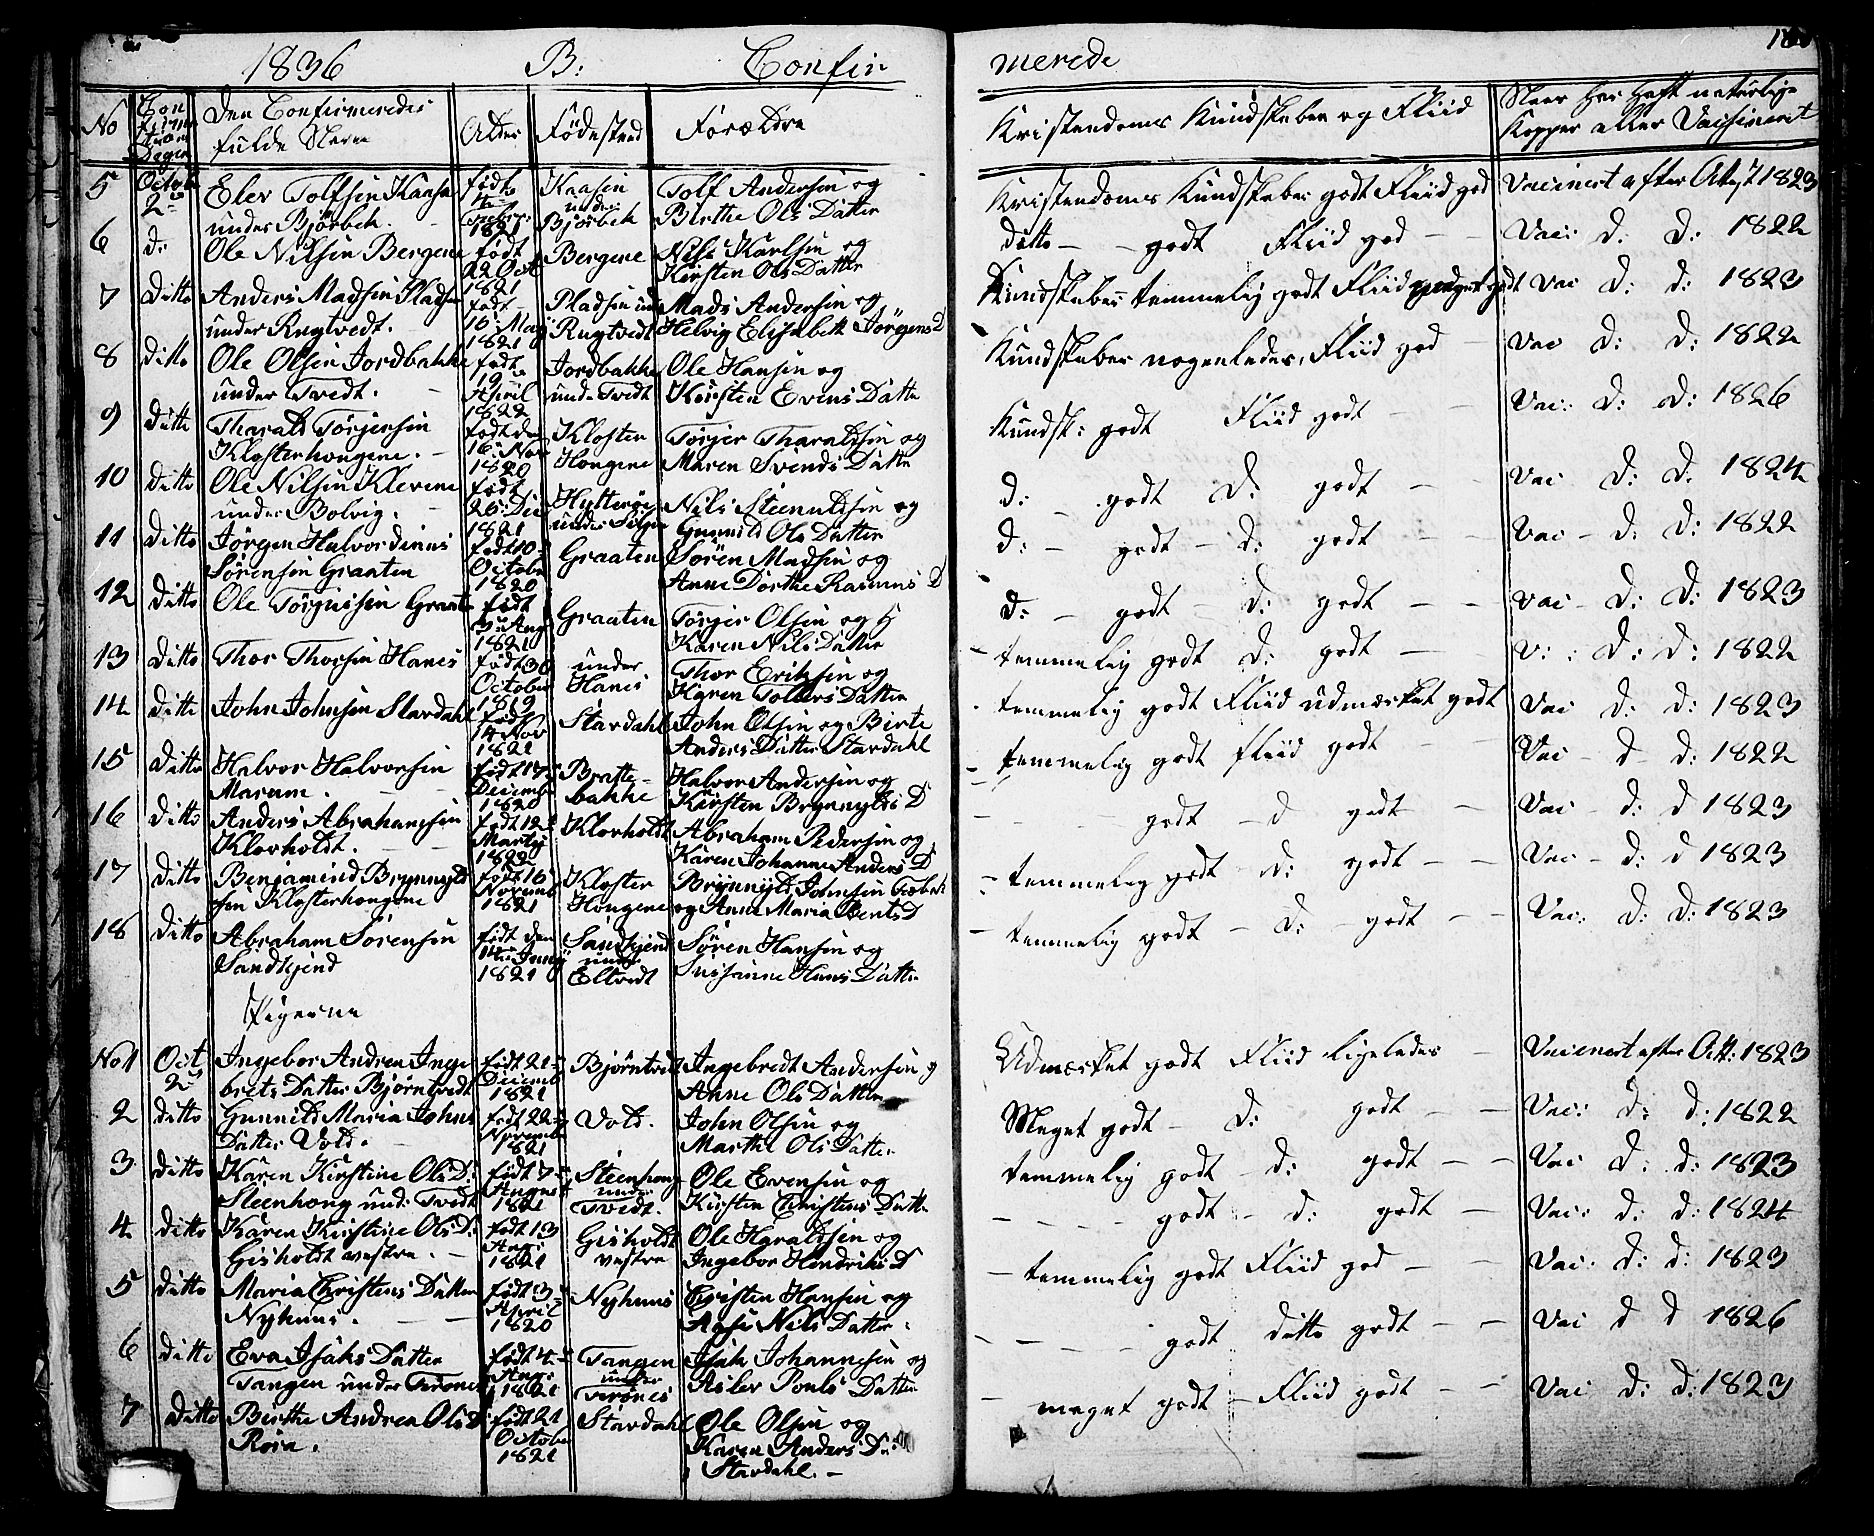 1836 B: Confir
No
Con
firma
tions
Dagen
Den Confirmeredes
fulde Navn
Alder
Fødested
Forældre
5 Octob 2
Elev Tolfsen Kaasa
under Bjørbek.
født 4 Febr: 1821
Kaasen under Bjørbek
Tolf Andersen og
Birthe Ols Datter
6 d:
Ole Nilsen Bergene
født 22 Oct 1821
Bergene
Nils Karlsen og
Kirsten Ols Datter
7 Ditto
Anders Madsen Pladsen
under Rugtvedt.
født 16 May 1821
Pladsen und Rugtvedt
Mads Andersen og
Helvig Elisabeth Jörgens D
8 ditto
Ole Olsen Jordbakke
under Tvedt.
født 19 April 1822
Jordbakke und. Tvedt
Ole Hansen og
Kirsten Evens Datter
9 ditto
Tharald Torjersen
Klosterhougene.
født den 16 Nov 1820
Kloster Hougene
Torjer Tharaldsen og
Maren Svends Datter
10 ditto
Ole Nilsen Klevene
under Bolvig.
født 26 Dec 1821
under
Nils Steenuldsen og
Gunnild Ols Datter
11 ditto
Jörgen Halvor
Sörensen Graaten
født 10 October 1820
Graaten
Sören Madsen og
Anne Dorthe Rasmus D
12 ditto
Ole Torjersen Graaten
født Aug 1821
Graaten
Torjer Olsen og
Karen Nils Datter
13 ditto
Thor Thorsen Hanes
født 30 October 1819
under Hanes
Thor Eriksen og
Karen Tollers Datter
14 ditto
John Johnsen Stardahl
født 14 Nov 1821
Stardahl
John Olsen og Birte
Anders Datter Stardahl
15 ditto
Halvor Halvorsen
Marum.
født 17 Decemb 1820
Bratte-bakke
Halvor Andersen og
Kirsten Brynnylds D
16 ditto
Anders Abrahamsen
Klovholdt.
født 12 Martij 1822
Klovholdt
Abraham Pedersen og
Karen Johanne Anders D
17 ditto
Benjamind Brynnyld
sen Klosterhougene
født 16 Novemb 1821
Kloster Hougene
Brynnyld Johnsen
og Anne Maria Bents D
18 ditto
Abraham Sörensen
Sandkjend
født den 14 1821
Sandkjend under Eltvedt
Sören Hansen og
Susanne Hans Datter
Pigerne
No 1 Oct 2
Ingebor Andrea Inge
brets Datter Bjørntvedt
født 21 Decemb 1821
Bjørntvedt
Ingebredt Andersen og
Anne Ols Datter
2 ditto
Gunnild Maria Johns
Datter Vold.
født 22 Novemb 1821
Vold.
John Olsen og
Marthe Ols Datter
3 ditto
Karen Kirstine Ols D:
Steenhoug und: Tvedt
født 7 August 1821
Steenhoug under Tvedt.
Ole Evensen og
Kirsten Christens Datter
4 ditto
Karen Kirstine Ols D:
Gisholdt vestre.
født 13 Aug: 1821
Gisholdt vestre
Ole Haraldsen og
Ingebor Hendriks D
5 ditto
Maria Christens Datter
Nyhuus.
født 3 April 1820
Nyhuus
Christen Hansen og
Aase Nils Datter.
6 ditto
Eva Isaks Datter
Tangen under
født 4 Aug: 1821
Tangen under
Isak Johannesen og
Aslev Pouls Datter
7 ditto
Birthe Andrea Ols D:
Röra.
født 21 October 1821
Stardahl
Ole Olsen og
Karen Anders D:
Stardahl.
merede
Kristendoms Kundskaber og Fliid
Naar har haft naturlige
Kopper eller Vaccineret
Kristendoms Kundskaber godt Fliid god Vaccinert efter Attest 1823
ditto - - godt Fliid god - - Vac: d: d: 1822
Kundskaber temmelig godt Fliid meget godt Vac d: d: 1823
Kundskaber nogenledes, Fliid god - Vac d: d: 1822
Kundsk: godt Fliid godt - - Vac: d: d: 1826
d: - godt d: godt - - Vac d: d. 1824
d: - godt - d: godt - - Vac - d: d: 1822
d: - godt - d: godt - - Vac - d: d: 1823
- temmelig godt d: godt - - V: : d: d: 1822
- temmelig godt Fliid udmærket godt Vac d: d: 1823
- temmelig godt fliid godt - - Vac - d - d: 1822
- - - godt - d godt - Vac - d: d 1823
- temmelig godt - d: - godt - - Vac - d: d 1823
- temmelig godt - d: - godt - - Vac: d: d: 1823
Udmærket godt Fliid ligeledes - Vaccinert efter Att: 1823
Meget godt - d: godt - - Vac: d: d: 1822
temmelig godt - d: godt - - Vac d: d: 1823
- - - - godt - d: godt - Vac: d: d: 1824
- temmelig godt Fliid god - - Vac: d: d: 1823
- - - godt ditto godt - - Vac d d 1826
- meget godt - Fliid godt - - Vac d: d: 1823